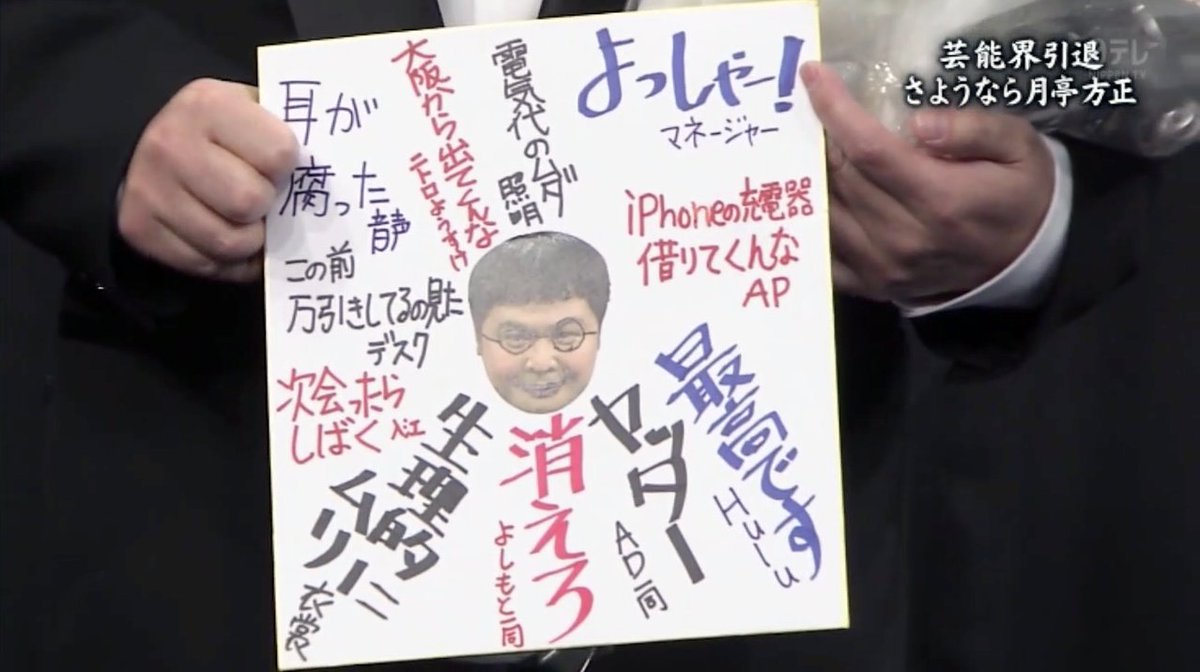 芸能界引退
さようなら月亭方正
日テレ
よっしゃー!
マネージャー
電気代のムダ
照明
大阪から出てくんな
ニトロようすけ
耳が
腐った
音声
iPhoneの充電器
借りてくんな
AP
この前
万引きしてるの見た
デスク
次会ったら
しばく
生理的に
ムリー
衣裳
消えろ
よしもと一同
ヤッター
AD一同
最高です
Hulu